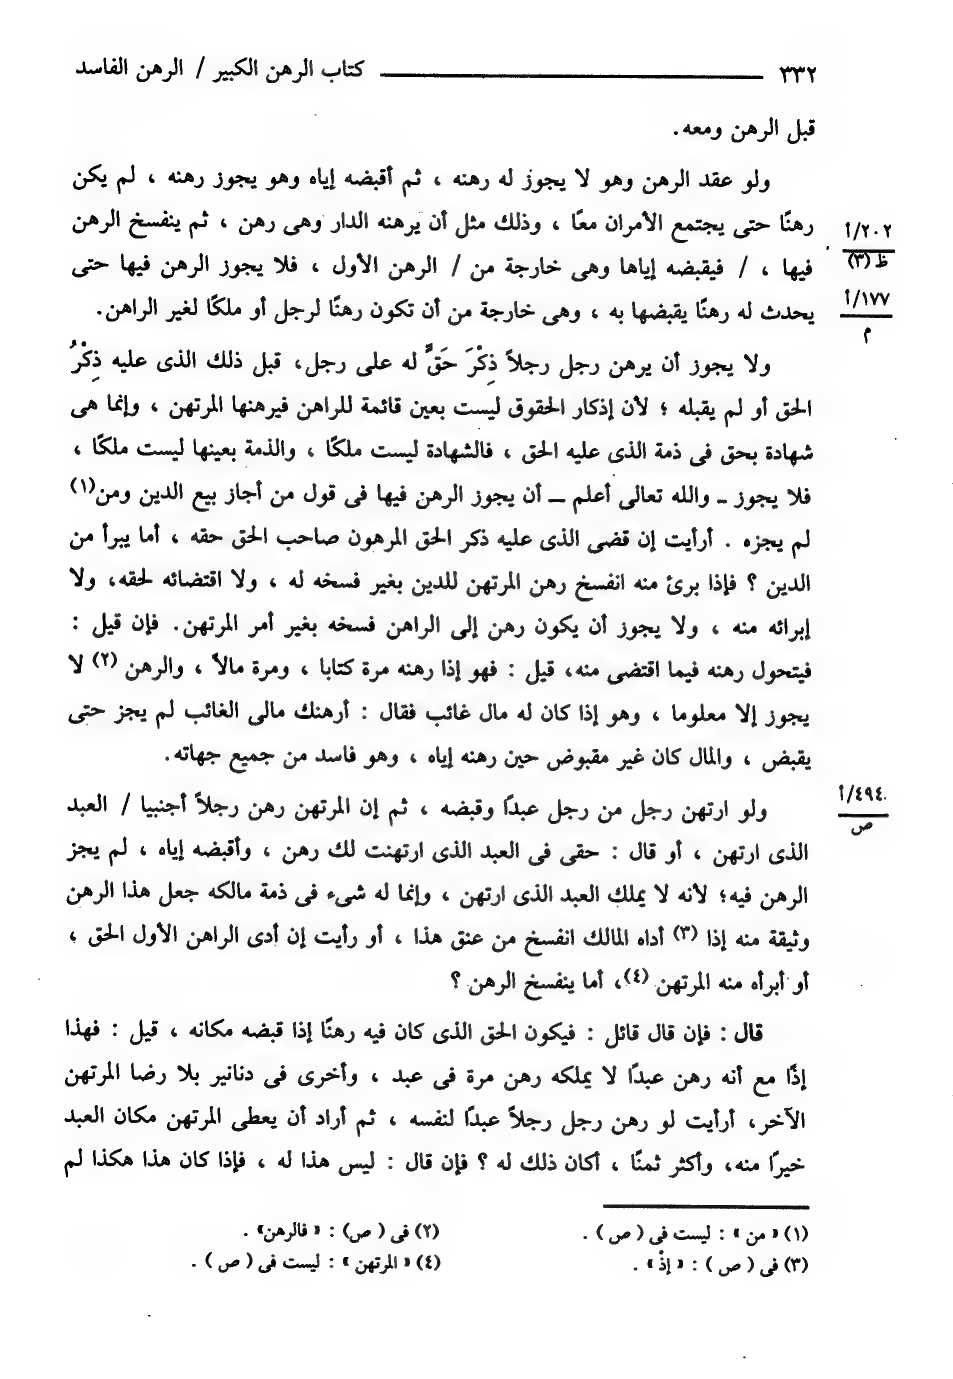 ٣٣٢ كتاب الرهن الكبير / الرهن الفاسد
قبل الرهن ومعه.
ولو عقد الرهن وهو لا يجوز له رهنه ، ثم أقبضه إياه وهو يجوز رهنه ، لم يكن
رهنًا حتى يجتمع الأمران معًا ، وذلك مثل أن يرهنه الدار وهى رهن ، ثم ينفسخ الرهن
٢٠٢/أ
ظ (٣)
فيها ، / فيقبضه إياها وهى خارجة من / الرهن الأول ، فلا يجوز الرهن فيها حتى
١٧٧/أ
م
يحدث له رهنًا يقبضها به ، وهى خارجة من أن تكون رهنًا لرجل أو ملكًا لغير الراهن.
ولا يجوز أن يرهن رجل رجلاً ذِكْرَ حَقٍّ له على رجل، قبل ذلك الذى عليه ذِكْرُ
الحق أو لم يقبله ؛ لأن إذكار الحقوق ليست بعين قائمة للراهن فيرهنها المرتهن ، وإنما هى
شهادة بحق فى ذمة الذى عليه الحق ، فالشهادة ليست ملكًا ، والذمة بعينها ليست ملكًا ،
فلا يجوز ـ والله تعالى أعلم ـ أن يجوز الرهن فيها فى قول من أجاز بيع الدين ومن(١)
لم يجزه . أرأيت إن قضى الذى عليه ذكر الحق المرهون صاحب الحق حقه ، أما يبرأ من
الدين ؟ فإذا برئ منه انفسخ رهن المرتهن للدين بغير فسخه له ، ولا اقتضائه لحقه، ولا
إبرائه منه ، ولا يجوز أن يكون رهن إلى الراهن فسخه بغير أمر المرتهن. فإن قيل :
فيتحول رهنه فيما اقتضى منه، قيل : فهو إذا رهنه مرة كتابا ، ومرة مالاً ، والرهن (٢) لا
يجوز إلا معلوما ، وهو إذا كان له مال غائب فقال : أرهنك مالى الغائب لم يجز حتى
يقبض ، والمال كان غير مقبوض حين رهنه إياه ، وهو فاسد من جميع جهاته.
ولو ارتهن رجل من رجل عبدًا وقبضه ، ثم إن المرتهن رهن رجلاً أجنبيا / العبد
٤٩٤/أ
ص
الذى ارتهن ، أو قال : حقى فى العبد الذى ارتهنت لك رهن ، وأقبضه إياه ، لم يجز
الرهن فيه؛ لأنه لا يملك العبد الذى ارتهن ، وإنما له شىء فى ذمة مالكه جعل هذا الرهن
وثيقة منه إذا (٣) أداه المالك انفسخ من عنق هذا ، أو رأيت إن أدى الراهن الأول الحق ،
أو أبرأه منه المرتهن (٤)، أما ينفسخ الرهن ؟
قال : فإن قال قائل : فيكون الحق الذى كان فيه رهنًا إذا قبضه مكانه ، قيل : فهذا
إذًا مع أنه رهن عبدًا لا يملكه رهن مرة فى عبد ، وأخرى فى دنانير بلا رضا المرتهن
الآخر، أرأيت لو رهن رجل رجلاً عبدًا لنفسه ، ثم أراد أن يعطى المرتهن مكان العبد
خيرًا منه، وأكثر ثمنًا ، أكان ذلك له ؟ فإن قال : ليس هذا له ، فإذا كان هذا هكذا لم
(١) « من » : ليست فى ( ص ) .
(٢) فى ( ص) : « فالرهن» .
(٣) فى ( ص ) : « إذْ » .
(٤) « المرتهن » : ليست فى ( ص ) .